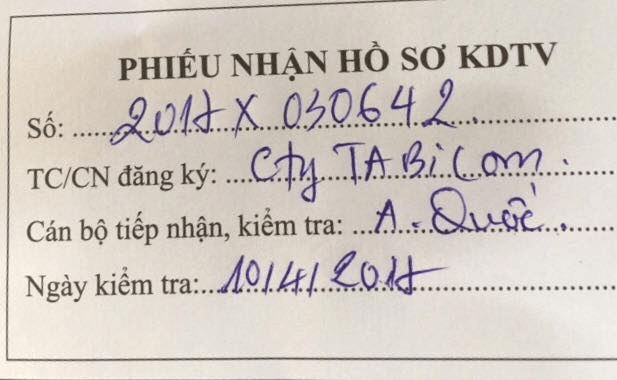 PHIẾU NHẬN HỒ SƠ KDTV
Số: 2017X 030642
TC/CN đăng ký: Cty TABicom.
Cán bộ tiếp nhận, kiểm tra: A. Quốc.
Ngày kiểm tra: 10/4/2017